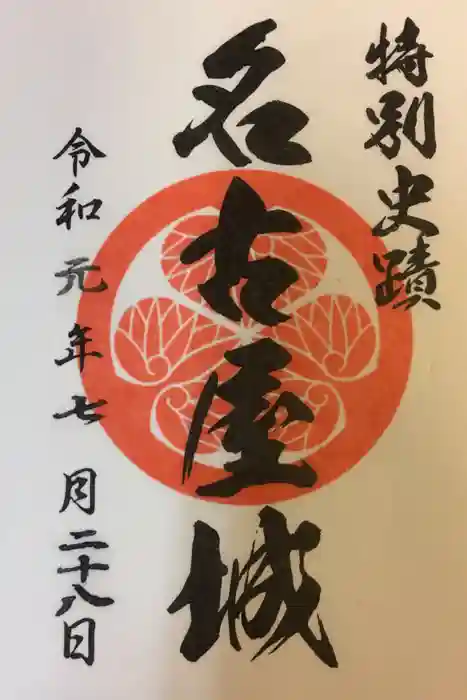 特別史蹟
名古屋城
令和元年七月二十八日